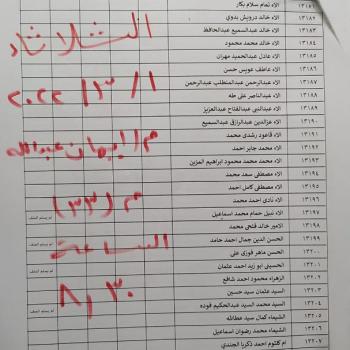 ١٣١٨١ الاء تمام سلام بكار
١٣١٨٢ الاء خالد درويش بدوي
١٣١٨٣ الاء خالد عبدالسميع عبدالحافظ
١٣١٨٤ الاء خالد محمد محمود
١٣١٨٥ الاء عادل عبدالحميد مهران
١٣١٨٦ الاء عاطف عويس حسن
١٣١٨٧ الاء عبدالرحمن عبدالمنطلب عبدالرحمن
١٣١٨٨ الاء عبدالناصر على طه
١٣١٨٩ الاء عبدالنبى عبدالفتاح عبدالعزيز
١٣١٩٠ الاء عزالدين عبدالرازق عبدالسميع
١٣١٩١ الاء قاعود رشدى محمد
١٣١٩٢ الاء محمد جابر احمد
١٣١٩٣ الاء محمد محمود ابراهيم المزين
١٣١٩٤ الاء مصطفى سعد محمد
١٣١٩٥ الاء مصطفى كامل احمد
١٣١٩٦ الاء نادى احمد محمد
١٣١٩٧ الاء نبيل حمام محمد اسماعيل
١٣١٩٨ الامير خالد فتحى محمد
١٣١٩٩ الحسن الدين جمال احمد حامد
١٣٢٠٠ الحسن ماهر فوزى على
١٣٢٠١ الحسينى ابو زيد احمد عثمان
١٣٢٠٢ الزهراء محمود احمد شافع
١٣٢٠٣ السيد عثمان سيد حسين
١٣٢٠٤ السيد محمد السيد عبدالحكيم فوده
١٣٢٠٥ الشيماء كمال سيد عطاالله
١٣٢٠٦ الشيماء محمد رضوان اسماعيل
١٣٢٠٧ ام كلثوم احمد ذكريا الجندي
الثلاثاء
١/٣/٢٠٢٢
م/ايهان عبدالله
م (٣٣)
الساعة
٨,٣٠